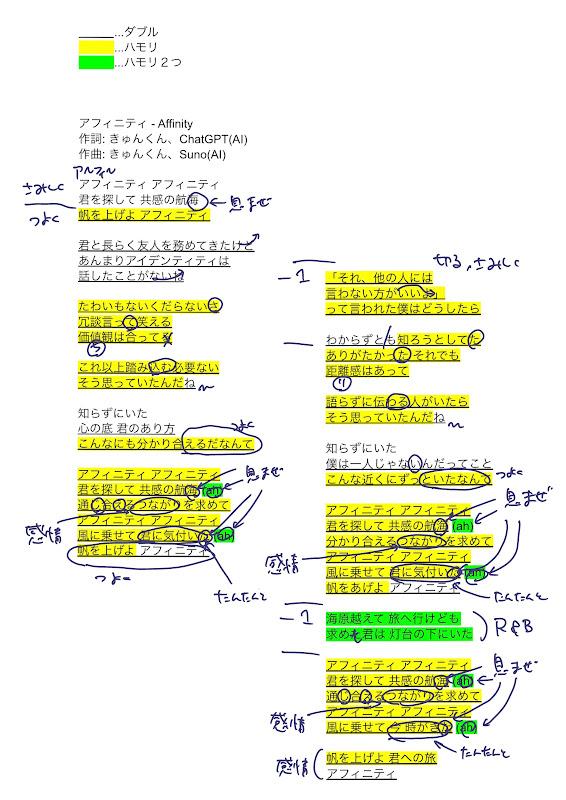 ...ダブル
...ハモリ
...ハモリ２つ
アフィニティ - Affinity
作詞: きゅんくん、ChatGPT(AI)
作曲: きゅんくん、Suno(AI)
さみしく
アフィニティ アフィニティ
君を探して 共感の航海 ← 息まぜ
つよく
帆を上げよ アフィニティ
君と長らく友人を務めてきたけど
あんまりアイデンティティは
話したことがないね
たわいもないくだらないさ
冗談言って笑える
価値観は合って
う
これ以上踏み込む必要ない
そう思っていたんだね
知らずにいた
心の底 君のあり方 つよく
こんなにも分かり合えるだなんて
アフィニティ アフィニティ
君を探して 共感の航海 (ah) 息まぜ
通じ合えるつながりを求めて
アフィニティ アフィニティ
感情
風に乗せて 君に気付いた (ah)
帆を上げよ アフィニティ
つよく
たんたんと
切る、さみしく
-1
「それ、他の人には
言わない方がいいよ」
って言われた僕はどうしたら
わからずとも 知ろうとしてた
ありがたかった それでも
距離感はあって
り
語らずに伝わる人がいたら
そう思っていたんだね
知らずにいた
僕は一人じゃないんだってこと つよく
こんな近くにずっといたなんて
息まぜ
アフィニティ アフィニティ
君を探して 共感の航海 (ah)
分かり合えるつながりを求めて
アフィニティ アフィニティ
感情
風に乗せて 君に気付いた (ah)
帆をあげよ アフィニティ たんたんと
-1
海原越えて 旅へ行けども
求め 君は 灯台の下にいた
R&B
アフィニティ アフィニティ 息まぜ
君を探して 共感の航海 (ah)
通じ合えるつながりを求めて
アフィニティ アフィニティ
感情
風に乗せて 今 時がきた (ah)
たんたんと
帆を上げよ 君への旅
感情
アフィニティ